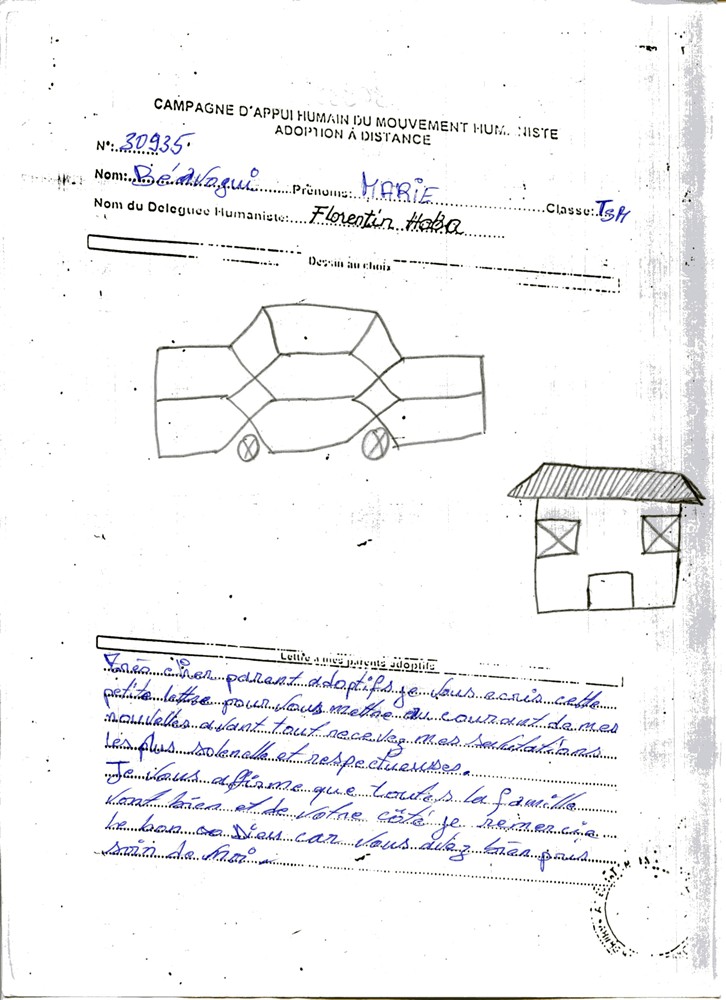 CAMPAGNE D'APPUI HUMAIN DU MOUVEMENT HUM. NISTE
ADOPTION À DISTANCE
N°: 30935
Nom: Béavogui Prénoms: MARIE Classe: TSM
Nom du Deleguée Humaniste: Florentin Haba
Dessin au choix
Lettre a mes parents adoptifs
Très cher parant adoptifs je vous ecris cette
petite lettre pour vous mettre au courant de mes
nouvelles avant tout recevez mes salitations
les plus solenelle et respectueuses.
Je vous affirme que toutes la famille
vont bien et de votre côté je remercie
le bon Dieu car vous avez bien pris
soin de moi.